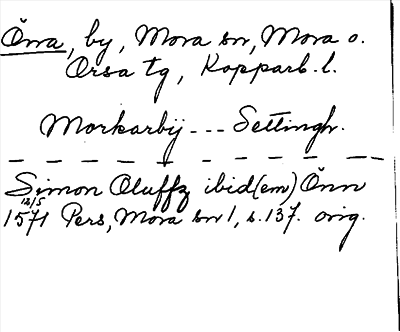 Önna, by, Mora sn, Mora o.
Orsa tg, Kopparb. l.
Morkarbÿ --- Settingh.
Simon Oluffz ibid(em) Önn
12/5
1571 Pers, Mora sn 1, s. 137. orig.